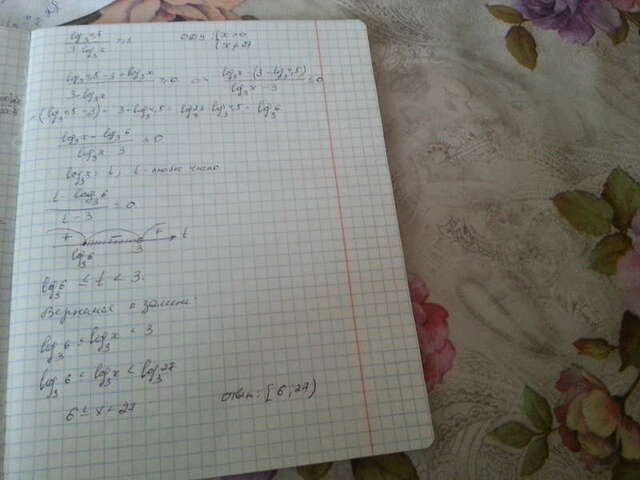 log₃4,5 / (3-log₃x) ≥ 1   ОДЗ: {x>0 {x≠27
(log₃4,5-3+log₃x) / (3-log₃x) ≥ 0   (log₃x-(3-log₃4,5)) / (log₃x-3) ≤ 0
3-log₃4,5 = log₃27-log₃4,5 = log₃6
(log₃x-log₃6) / (log₃x-3) ≤ 0
log₃x = t, t-любое число
(t-log₃6) / (t-3) ≤ 0
+ - + t
log₃6 3
log₃6 ≤ t < 3
Вернемся к замене:
log₃6 ≤ log₃x < 3
log₃6 ≤ log₃x < log₃27
6 ≤ x < 27   Ответ: [6;27)